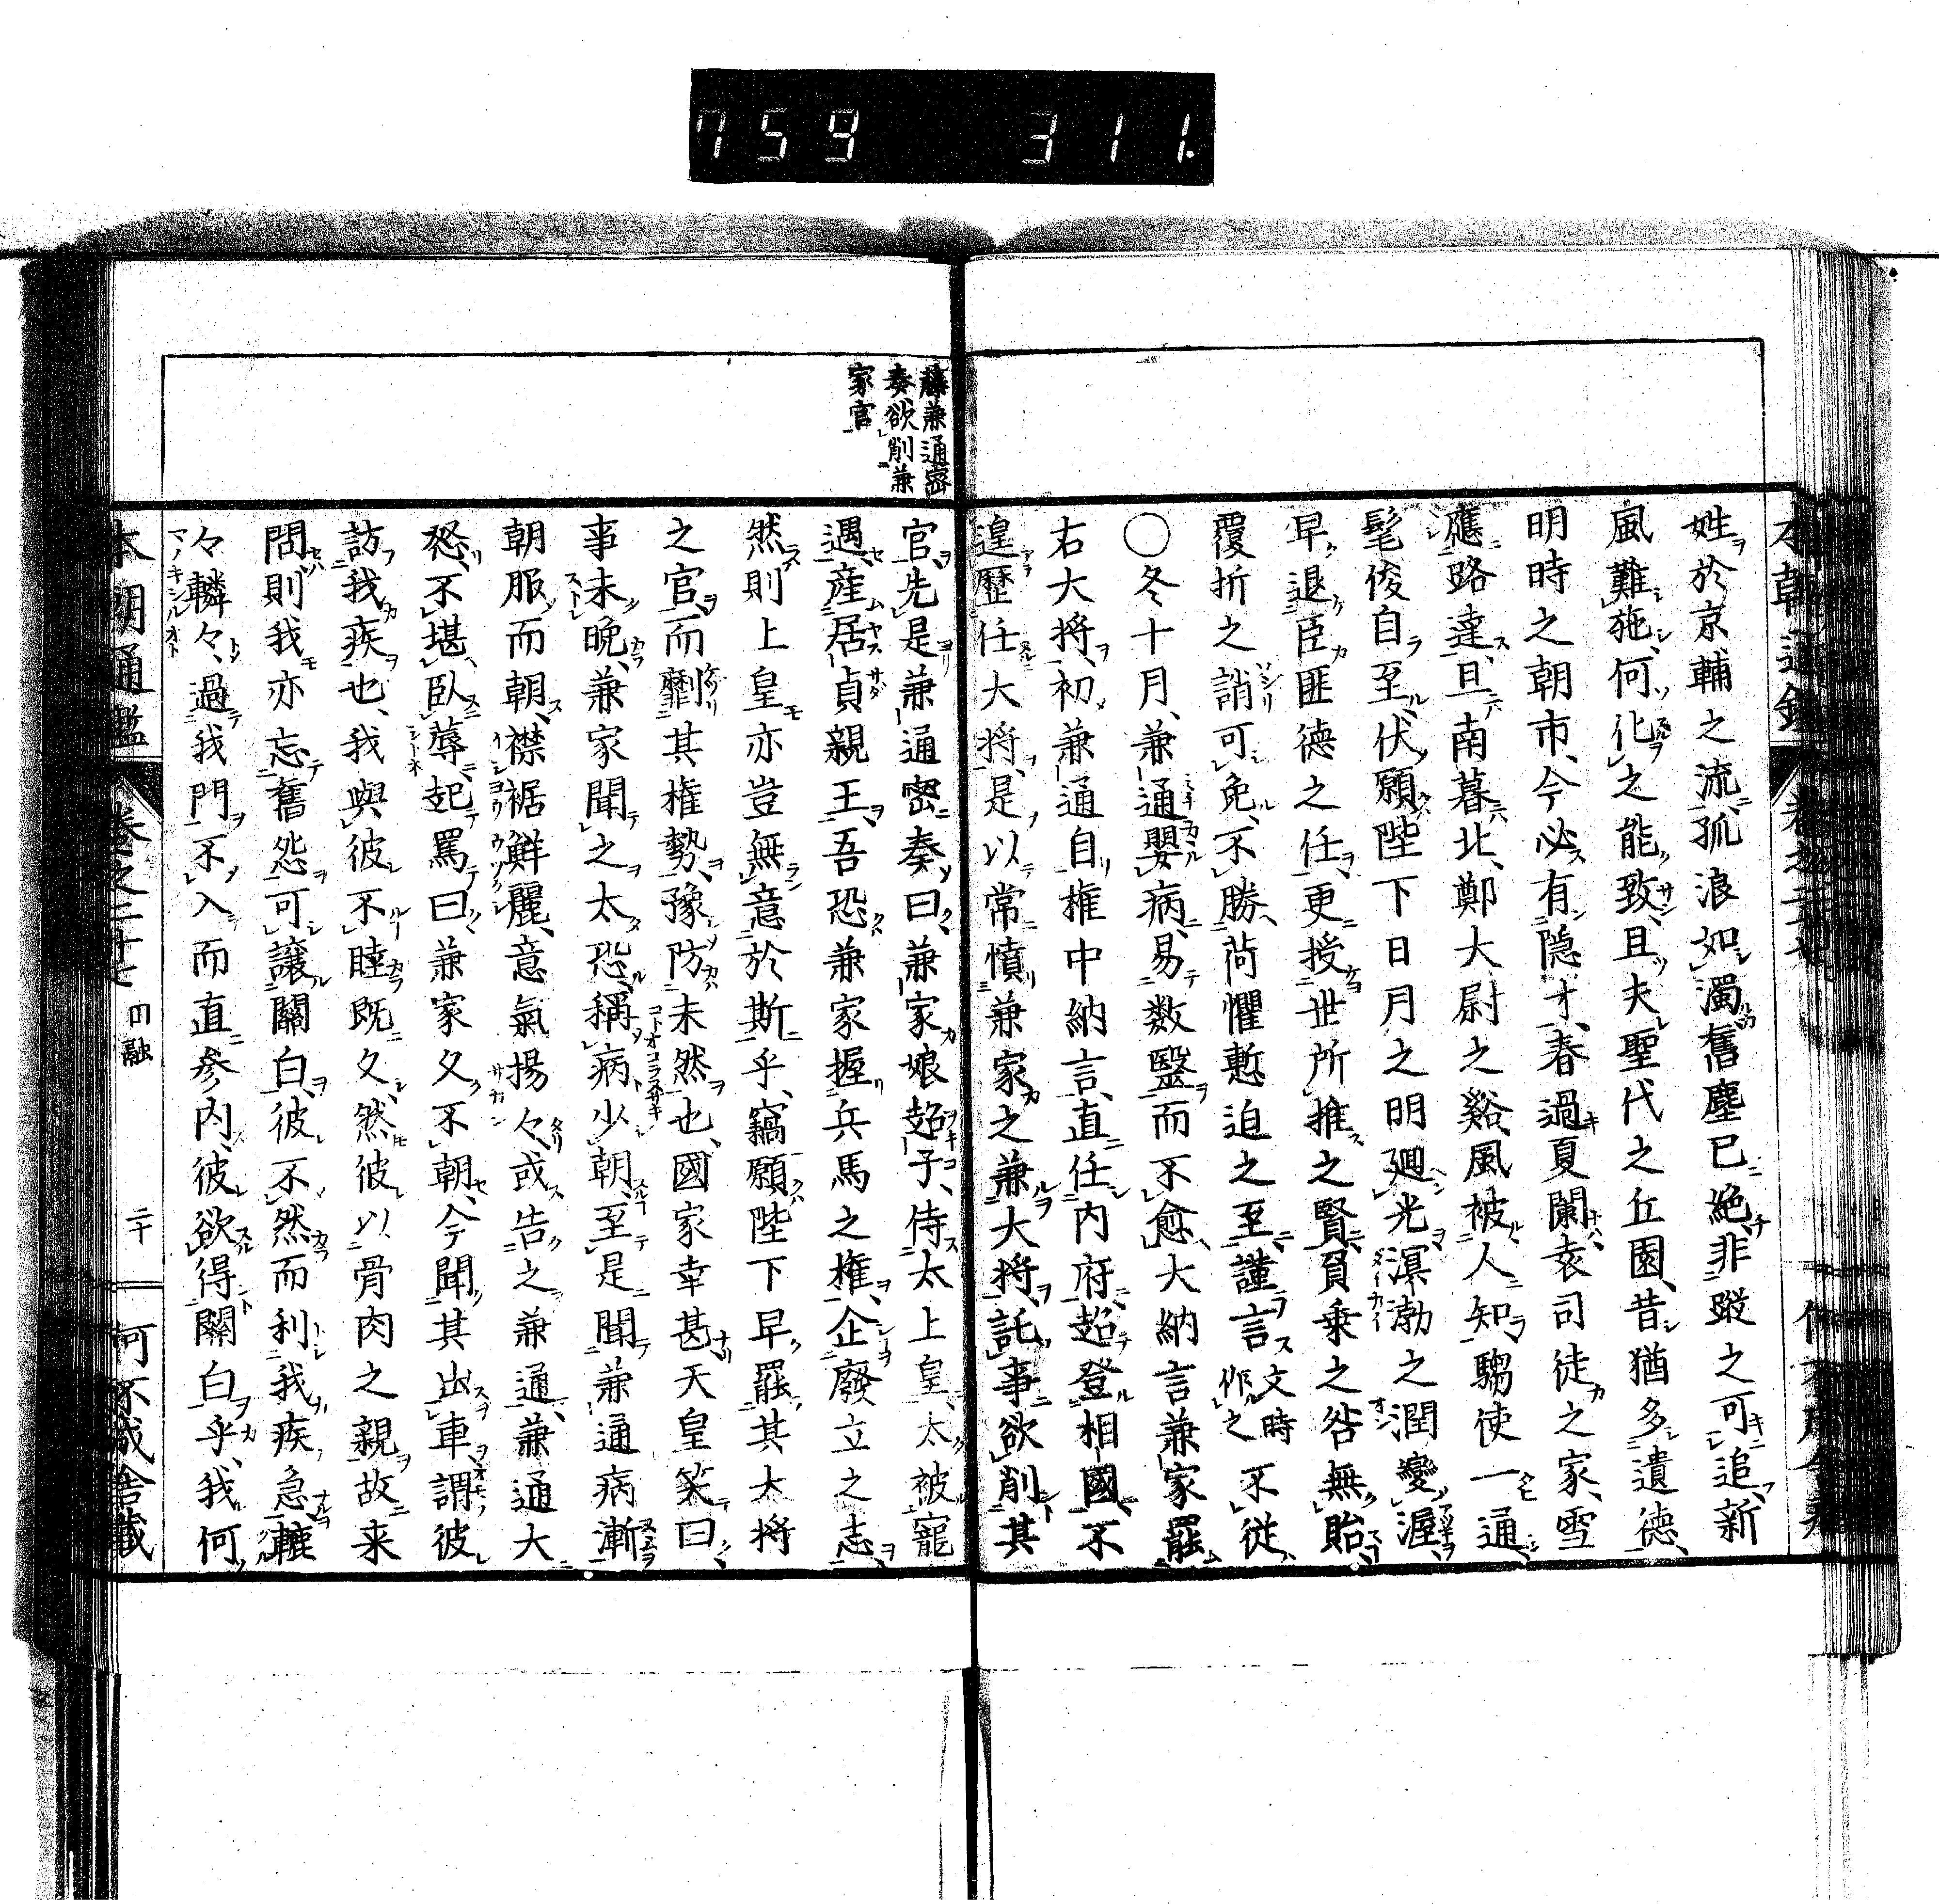 759 311.
姓於京輔之流孤浪如濁舊塵已絶非蹤之可追新
風難施何化之能致且夫聖代之丘園昔猶多遺德
明時之朝市今必有隠才春過夏闌袁司徒之家雪
應路達旦南暮北鄭大尉之谿風被人知騶使一通
髦俊自至伏願陛下日月之明廻光溟渤之潤變渥
早退臣匪德之任更授世所推之賢負乗之咎無貽
覆折之誚可免不勝荷懼慙迫之至謹言文時作之不従
〇冬十月兼通嬰病易数毉而不愈大納言兼家罷
右大将初兼通自権中納言直任内府超登相國不
遑歴任大将是以常憤兼家之兼大将託事欲削其
藤兼通密
奏欲削兼
家官
官先是兼通密奏曰兼家娘超子侍太上皇太被寵
遇産居貞親王吾恐兼家握兵馬之権企廢立之志
然則上皇亦豈無意於斯乎竊願陛下早罷其大将
之官而劘其権勢豫防未然也國家幸甚天皇笑曰
事未晩兼家聞之太恐稱病少朝至是聞兼通病漸
朝服而朝襟裾鮮麗意氣揚々或告之兼通兼通大
怒不堪臥蓐起罵曰兼家久不朝今聞其出車謂彼
訪我疾也我與彼不睦既久然彼以骨肉之親故来
問則我亦忘舊怨可讓關白彼不然而利我疾急轆
々轔々過我門不入而直参内彼欲得關白乎我何
本朝通鑑 卷之三十七 円融 二十 何不成舎藏